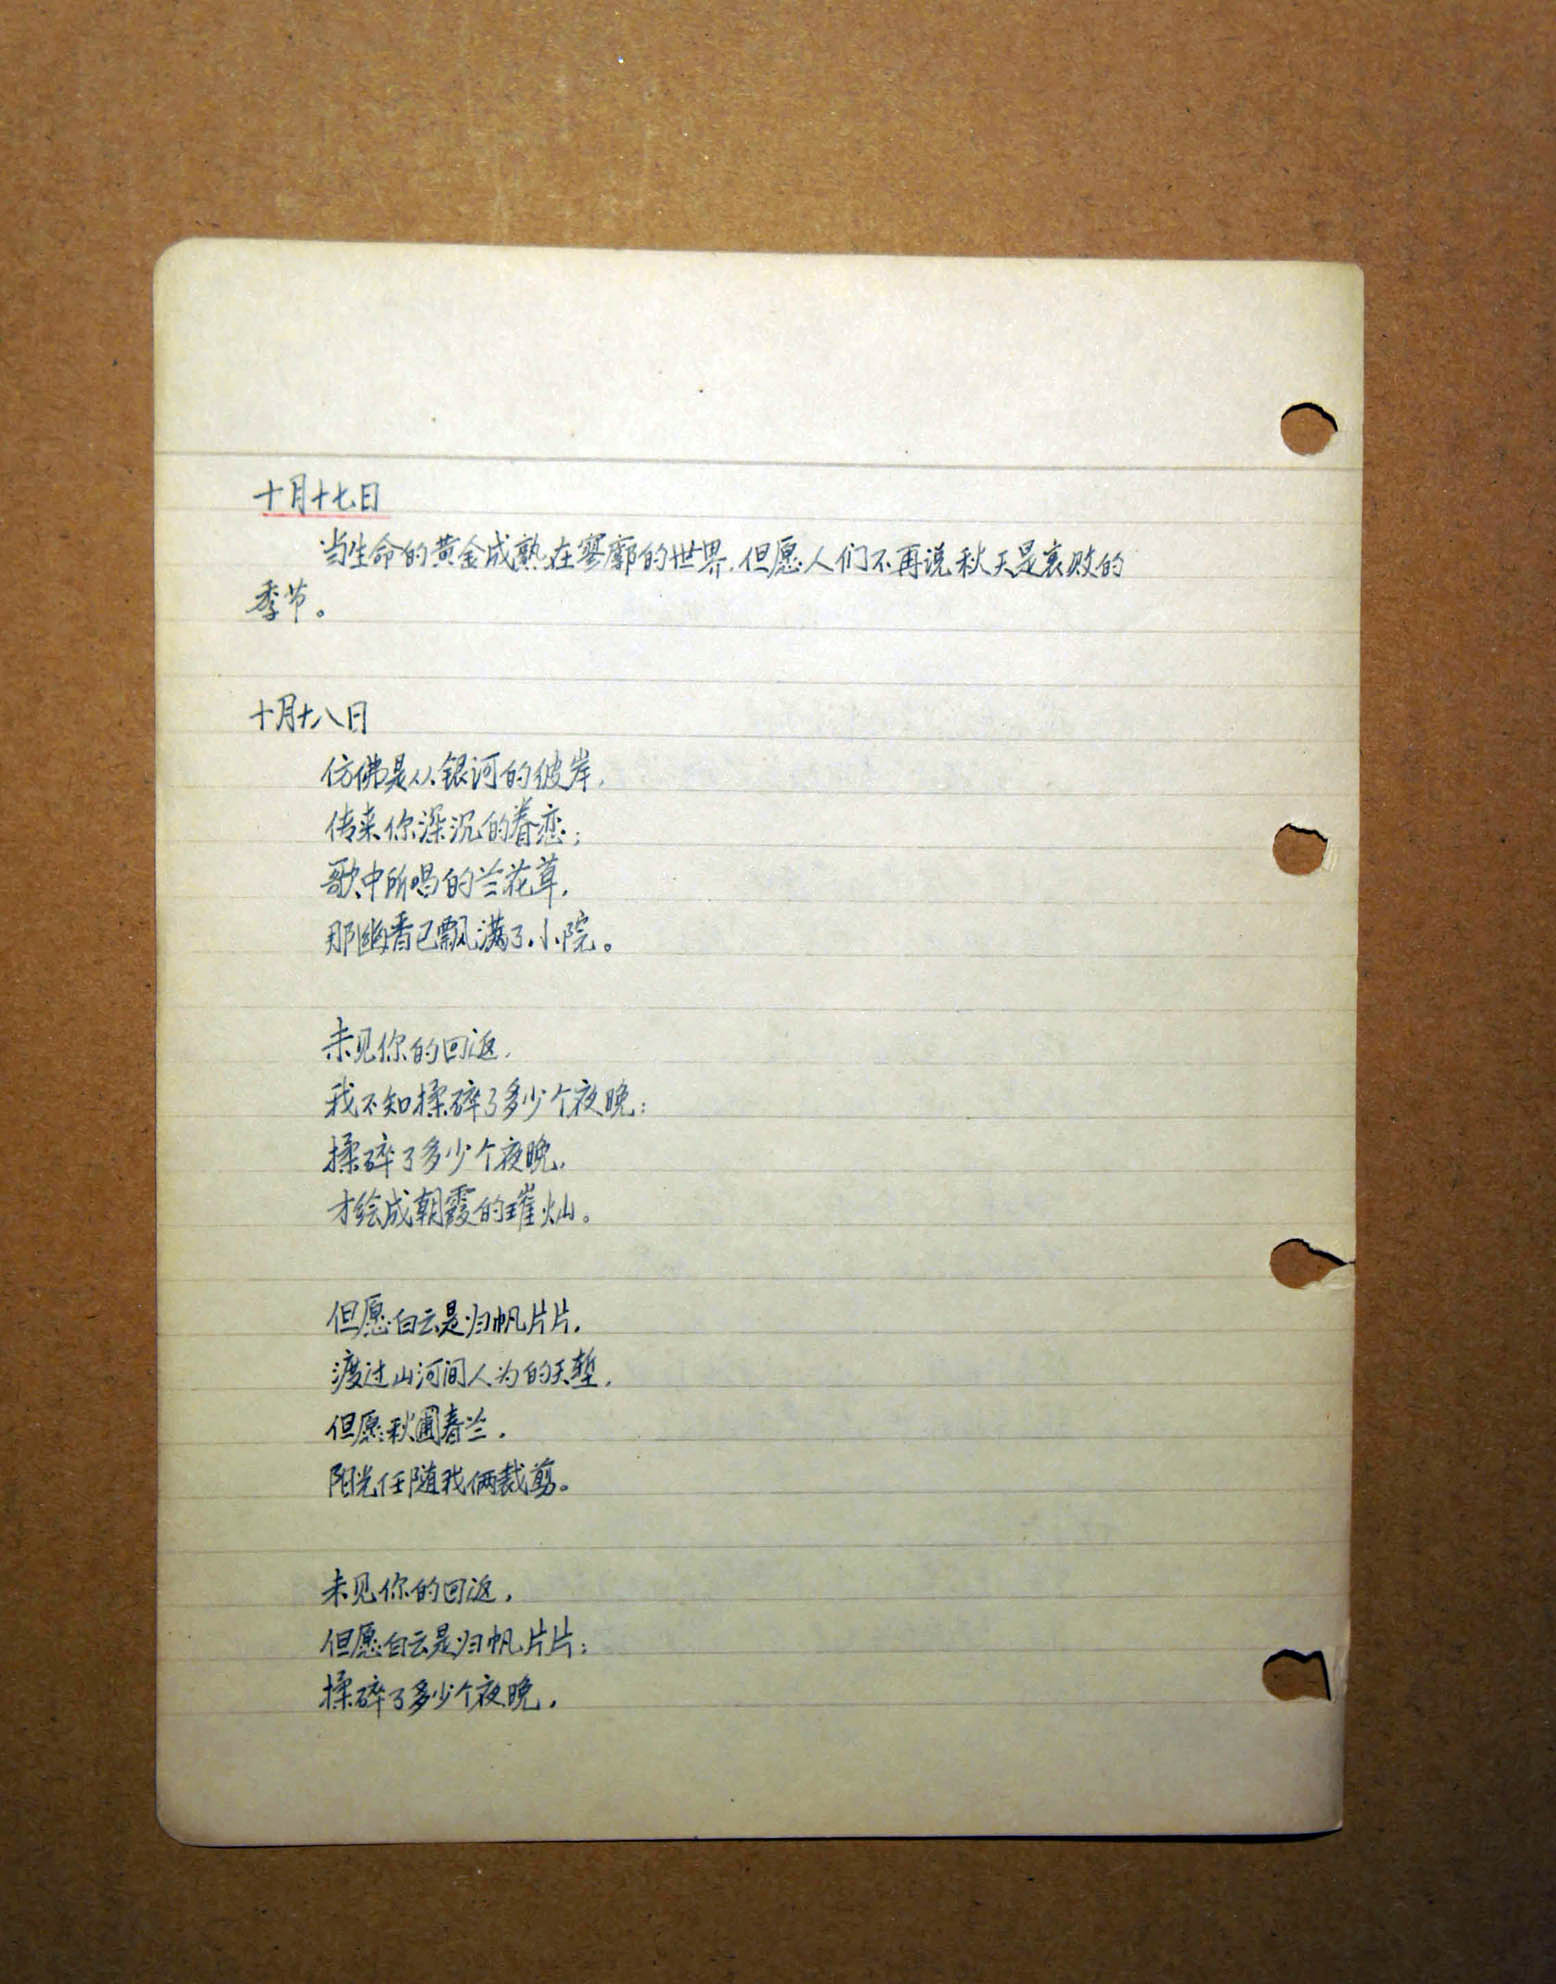 十月十七日
当生命的黄金成熟在寥廓的世界，但愿人们不再说秋天是衰败的
季节。
十月十八日
仿佛是从银河的彼岸，
传来你深沉的眷恋；
歌中所唱的兰花草，
那幽香已飘满了小院。
未见你的回返，
我不知揉碎了多少个夜晚；
揉碎了多少个夜晚，
才绘成朝霞的璀灿。
但愿白云是归帆片片，
渡过山河间人为的天堑，
但愿秋圃春兰，
阳光任随我俩裁剪。
未见你的回返，
但愿白云是归帆片片；
揉碎了多少个夜晚，